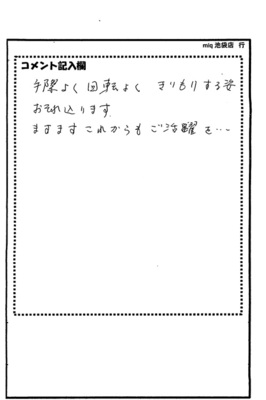 miq 池袋店 行
コメント記入欄
手際よく 回転よく きりもりする姿
おそれ入ります.
ますます これからも ご活躍 を…